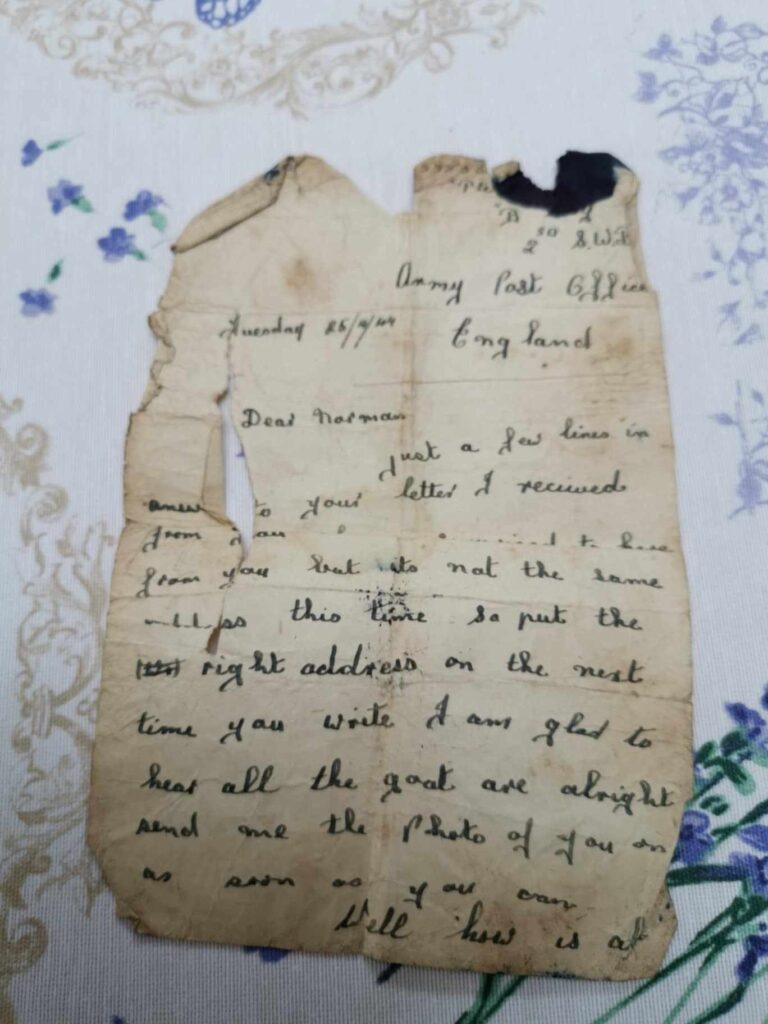 2ND S.W.B
Army Post Office
Tuesday England
Dear Norman
just a few lines in
answ to your letter I recieved
from you to hear
from you but its not the same
this time so put the
right address on the next
time you write I am glad to
hear all the goat are alright
send me the Photo of you on
as soon as you can
Well how is